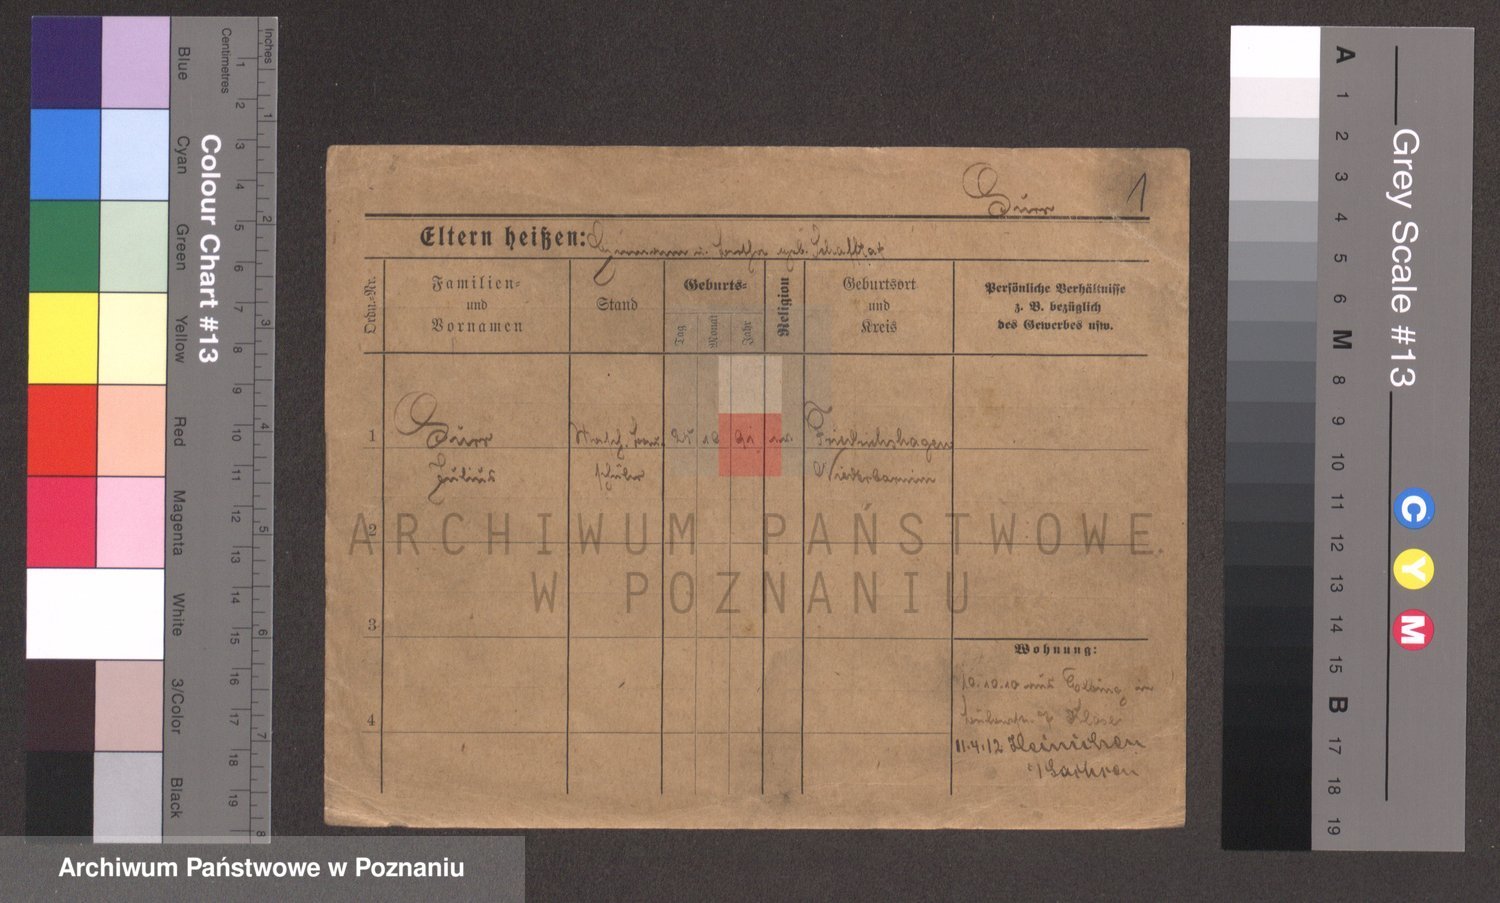 Inches
Centimetres
Colour Chart #13
Blue
Cyan
Green
Yellow
Red
Magenta
White
3/Color
Black
1 2 3 4 5 6 7 8 9 10 11 12 13 14 15 16 17 18 19
1 2 3 4 5 6 7 8
1
Eltern heißen:
Ordn.-Nr.
Familien-
und
Vornamen
Stand
Geburts-
Tag
Monat
Jahr
Religion
Geburtsort
und
Kreis
Persönliche Verhältnisse
z. B. bezüglich
des Gewerbes usw.
1
Friedrichshagen
Julius
schüler
Niederbarnim
2
3
4
Wohnung:
10.10.10 aus
11.4.12 Hainichen
Sachsen
ARCHIWUM PAŃSTWOWE
W POZNANIU
Grey Scale #13
A 1 2 3 4 5 6 M 8 9 10 11 12 13 14 15 B 17 18 19
C
Y
M
Archiwum Państwowe w Poznaniu